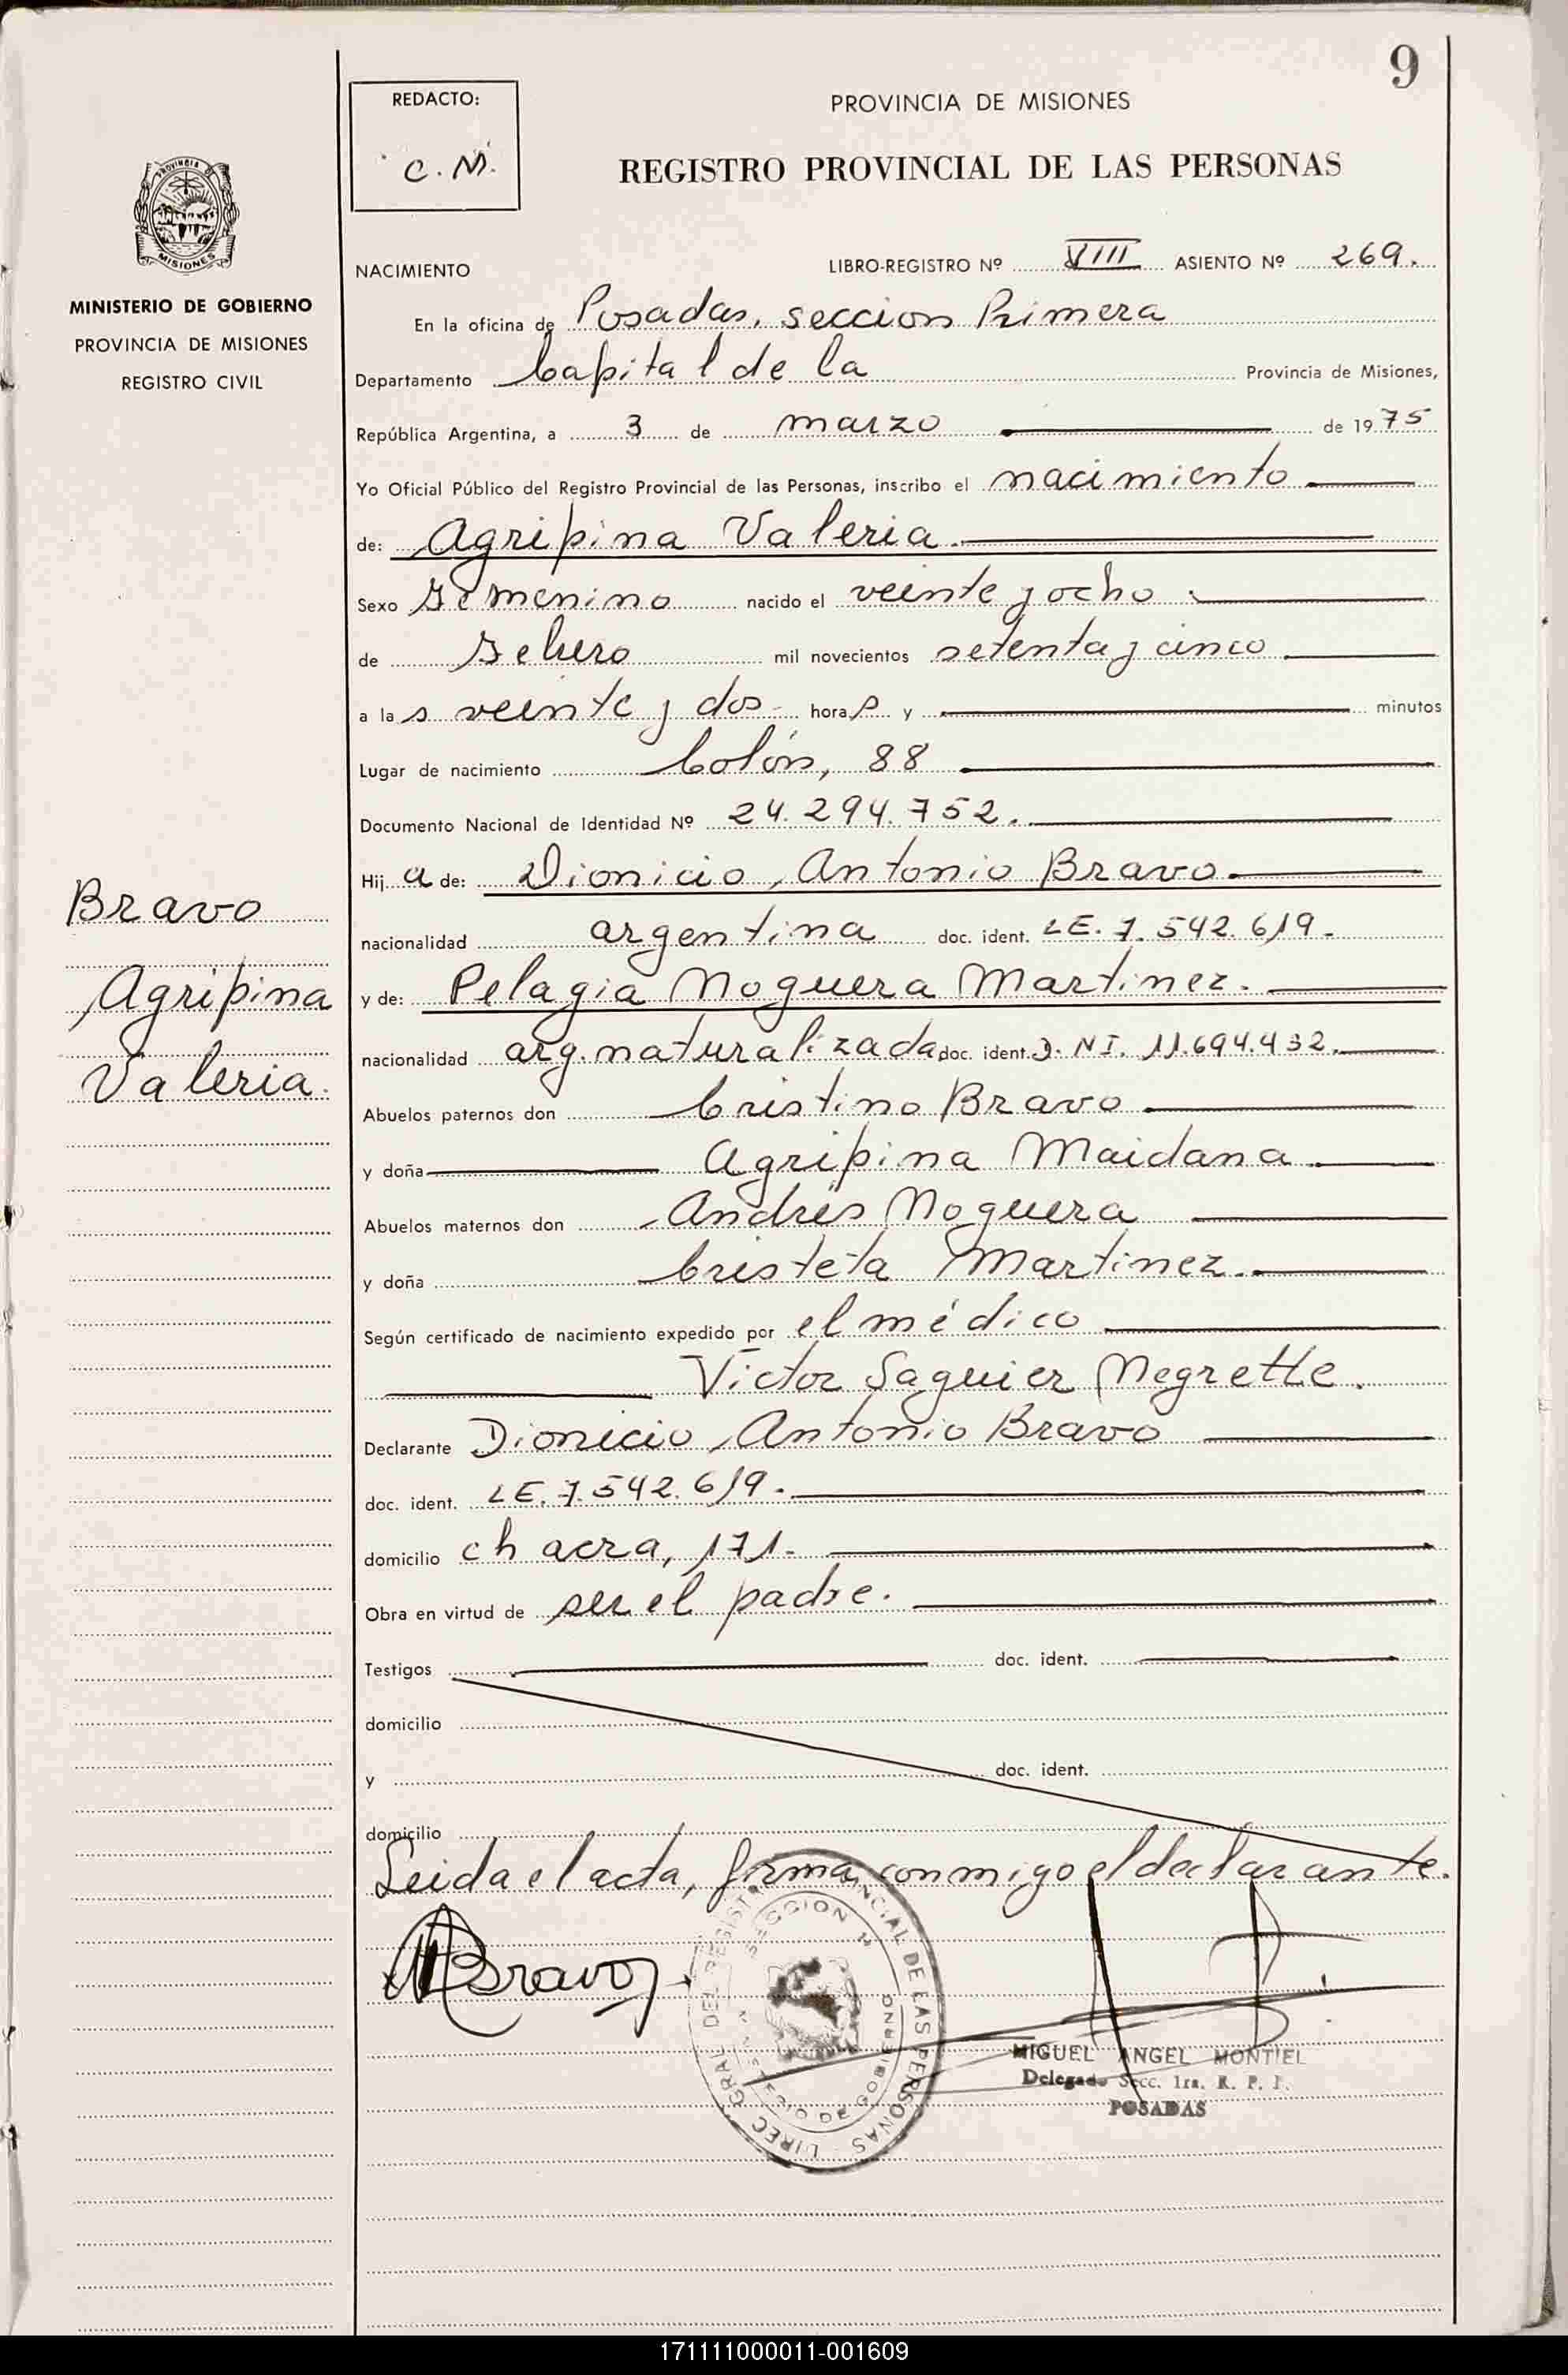 9
REDACTO:
C. M.
PROVINCIA DE MISIONES
REGISTRO PROVINCIAL DE LAS PERSONAS
PROVINCIA
MISIONES
MINISTERIO DE GOBIERNO
PROVINCIA DE MISIONES
REGISTRO CIVIL
NACIMIENTO LIBRO-REGISTRO Nº VIII ASIENTO Nº 269.
En la oficina de Posadas, seccion Primera
Departamento Capital de la Provincia de Misiones,
República Argentina, a 3 de marzo de 1975
Yo Oficial Público del Registro Provincial de las Personas, inscribo el nacimiento
de: Agripina Valeria.
Sexo Femenino nacido el veinte y ocho
de Febrero mil novecientos setenta y cinco
a las veinte y dos horas y minutos
Lugar de nacimiento Colón, 88
Documento Nacional de Identidad Nº 24.294.752.
Hija de: Dionicio Antonio Bravo
nacionalidad argentina doc. ident. LE. 7.542.619.
y de: Pelagia Noguera Martinez.
nacionalidad arg. naturalizada doc. ident. D.NI. 11.694.432.
Abuelos paternos don Cristino Bravo
y doña Agripina Maidana
Abuelos maternos don Andrés Noguera
y doña Cristeta Martinez.
Según certificado de nacimiento expedido por el médico
Victor Saguier Negrette.
Declarante Dionicio Antonio Bravo
doc. ident. LE. 7.542.619.
domicilio chacra, 171.
Obra en virtud de ser el padre.
Testigos doc. ident.
domicilio
y doc. ident.
domicilio
Leida el acta, firma conmigo el declarante.
Bravo
Agripina
Valeria.
Bravo
DIREC. GRAL. DEL REGISTRO PROVINCIAL DE LAS PERSONAS
SECCION 1ª
MIGUEL ANGEL MONTIEL
Delegado Secc. 1ra. R. P. P.
POSADAS
171111000011-001609